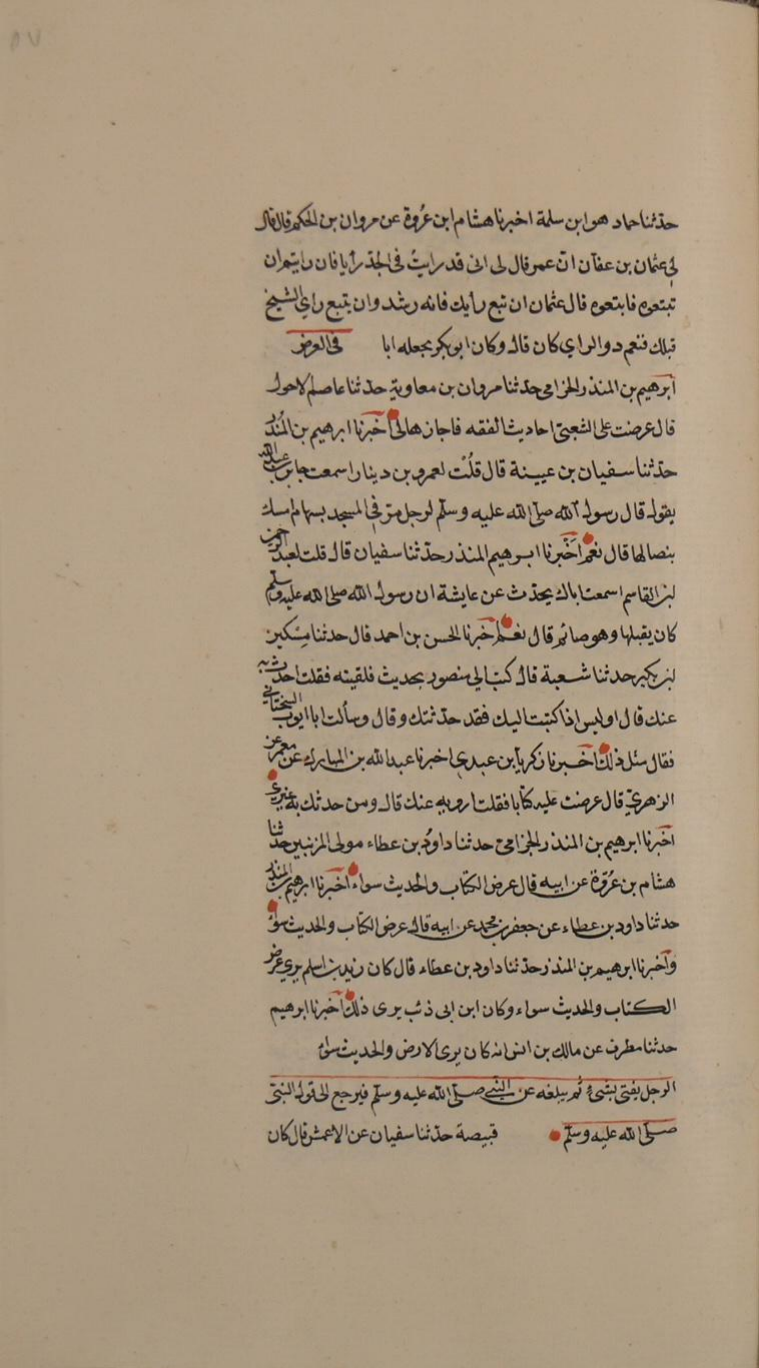 حدثنا حماد هو ابن سلمة اخبرنا هشام ابن عُروة عن مروان بن الحكم قال قال
لى عثمان بن عفان انّ عمر قال لى انى قد رايتُ فى الجدّ رأيا فان رايتم ان
تبتعوه فابتعوه قال عثمان ان تبع رأيك فانه رشد وان يتبع راي الشيخ
قبلك فنعم ذو الراي كان قال وكان ابو بكر يجعله ابا فى العرض
ابرهيم بن المنذر الحزامى حدثنا مروان بن معاوية حدثنا عاصم الاحول
قال عرضت على الشعبىّ احاديث الفقه فاجازها لى اخبرنا ابرهيم بن المنذر
حدثنا سفيان بن عيينة قال قلُت لعمرو بن دينار اسمعت جابر بن عبد الله
يقول قال رسول الله صلى الله عليه وسلم لرجل مرّ في المسجد بسهام امسك
بنصالها قال نعم اخبرنا ابرهيم المنذر حدثنا سفيان قال قلت لعبد الرحمن
ابن القاسم اسمعت اباك يحدث عن عايشة ان رسول الله صلى الله عليه وسلم
كان يقبلها وهو صائم قال نعم اخبرنا الحسن بن احمد قال حدثنا مسكين
ابن بكير حدثنا شعبة قال كتب الي منصور بحديث فلقيته فقلت احدث به
عنك قال اوليس اذا كتبت اليك فقد حدثتك وقال وسألت ابا ايوب السختياني
فقال مثل ذلك اخبرنا زكريا بن عدي اخبرنا عبد الله بن المبارك عن معمر عن
الزهريّ قال عرضت عليه كتابا فقلت ارويه عنك قال ومن حدثك به غيري
اخبرنا ابرهيم بن المنذر الحزامى حدثنا داودُ بن عطاء مولى المزنيين حدثنا
هشام بن عُرْوَة عن ابيه قال عرض الكتاب والحديث سواء اخبرنا ابرهيم بن المنذر
حدثنا داود بن عطاء عن جعفر بن محمد عن ابيه قال عرض الكتاب والحديث سواء
واخبرنا ابرهيم بن المنذر حدثنا داود بن عطاء قال كان زيد بن اسلم يرى عرض
الكتاب والحديث سواء وكان ابن ابى ذئب يرى ذلك اخبرنا ابرهيم
حدثنا مطرف عن مالك بن انس انه كان يرى الارض والحديث سواء
الرجل يفتى بشىء ثم يبلغه عن النبي صلى الله عليه وسلم فيرجع الى قول النبى
صلى الله عليه وسلم قبيصة حدثنا سفيان عن الاعمش قال كان